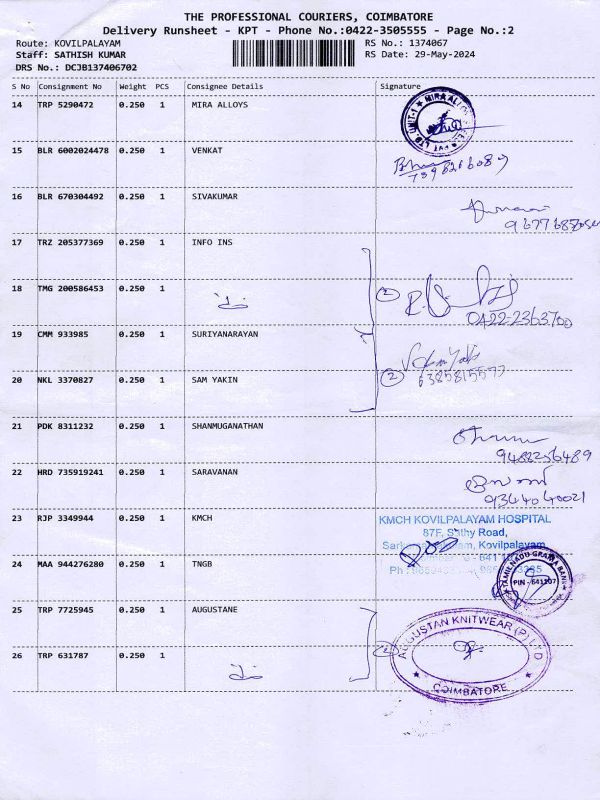 THE PROFESSIONAL COURIERS, COIMBATORE
Delivery Runsheet - KPT - Phone No.:0422-3505555 - Page No.:2
Route: KOVILPALAYAM RS No.: 1374067
Staff: SATHISH KUMAR RS Date: 29-May-2024
DRS No.: DCJB137406702
S No Consignment No Weight PCS Consignee Details Signature
14 TRP 5290472 0.250 1 MIRA ALLOYS
UNIT-1 ★ MIRA ALLOY
15 BLR 6002024478 0.250 1 VENKAT
16 BLR 670304492 0.250 1 SIVAKUMAR
17 TRZ 205377369 0.250 1 INFO INS
18 TMG 200586453 0.250 1
0422-2363700
19 CMM 933985 0.250 1 SURIYANARAYAN
20 NKL 3370827 0.250 1 SAM YAKIN
2
21 PDK 8311232 0.250 1 SHANMUGANATHAN
9488256489
22 HRD 735919241 0.250 1 SARAVANAN
9364040021
23 RJP 3349944 0.250 1 KMCH
KMCH KOVILPALAYAM HOSPITAL
87F, Sathy Road,
Kovilpalayam
24 MAA 944276280 0.250 1 TNGB
TAMILNADU GRAMA BANK
PIN - 641107
25 TRP 7725945 0.250 1 AUGUSTANE
AUGUSTAN KNITWEAR (P) LTD
COIMBATORE
26 TRP 631787 0.250 1